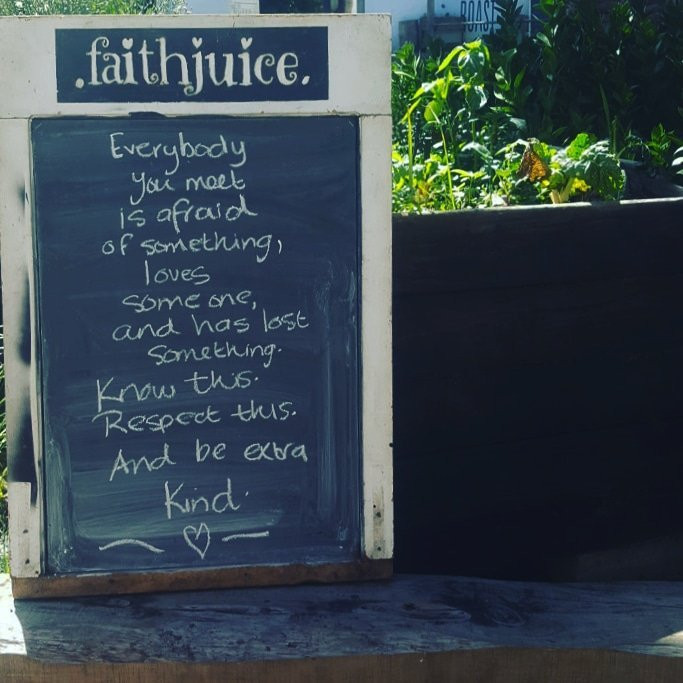 .faithjuice.
Everybody
you meet
is afraid
of something,
loves
some one,
and has lost
something.
Know this.
Respect this.
And be extra
Kind.
ROAST